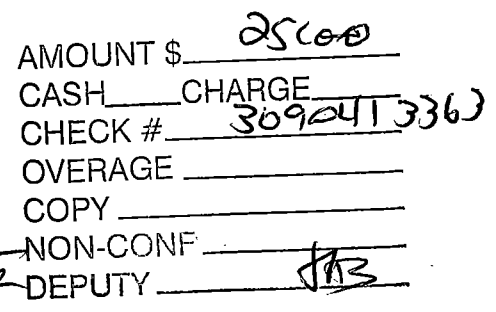 AMOUNT $ 25.00
CASH CHARGE
CHECK # 30904113363
OVERAGE
COPY
NON-CONF
DEPUTY